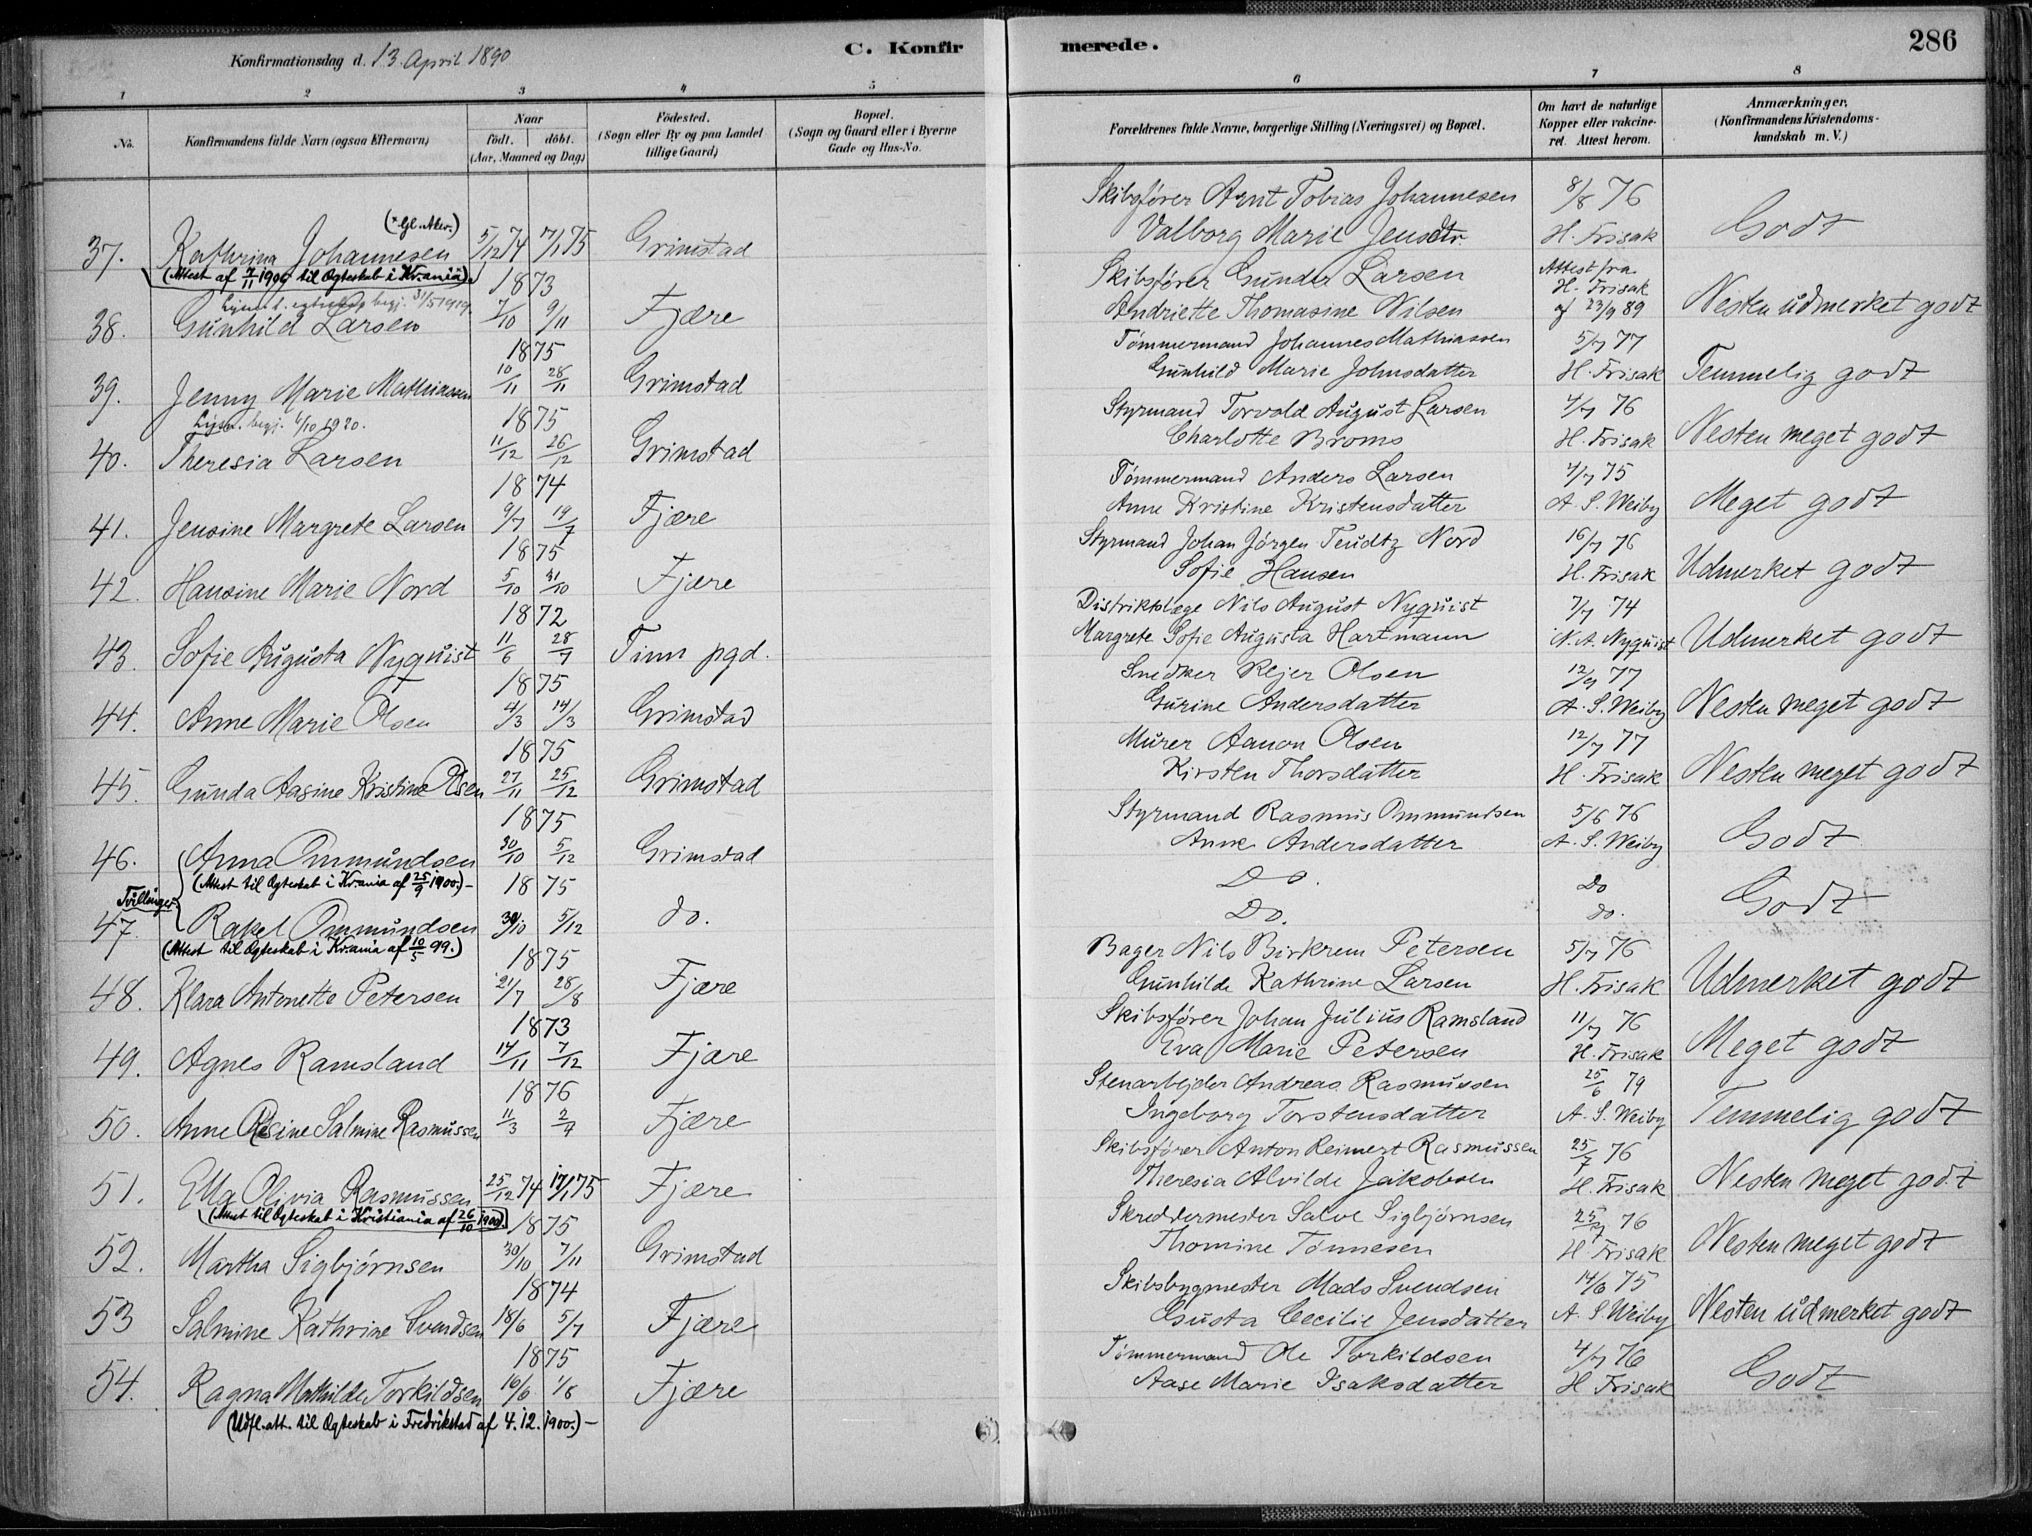 Konfirmationsdag d. 13. April 1890
C. Konfirmerede.
286
1 2 3 4 5 6 7 8
No. Konfirmandens fulde Navn (ogsaa Efternavn) Naar født. døbt. (Aar, Maaned og Dag) Fødested. (Sogn eller By og paa Landet tillige Gaard) Bopæl. (Sogn og Gaard eller i Byerne Gade og Hus-No. Forældrenes fulde Navne, borgerlige Stilling (Næringsvei) og Bopæl. Om havt de naturlige Kopper eller vakcineret. Attest herom. Anmærkninger. (Konfirmandens Kristendomskundskab m. V.)
Skibsfører Arnt Tobias Johannesen 8/8 76
37. Kathrina Johannesen 5/12 74 17/1 75 Grimstad Valborg Marie Jensdtr. H. Frisak Godt
(Attest af 7/11 1900 til Ægteskab i Kr.ania)
1873 Skibsfører Gunder Larsen Attest fra H. Frisak
38. Gunhild Larsen 7/10 9/11 Fjære Andriette Thomasine Nilsen af 23/9 89 Nesten udmerket godt
1875 Tømmermand Johannes Mathiassen 5/7 77
39. Jenny Marie Mathiassen 10/11 28/11 Grimstad Gunhild Marie Johnsdatter H. Frisak Temmelig godt
Lysn. begj. 6/10 1920.
1875 Styrmand Torvald August Larsen 4/7 76
40. Theresia Larsen 11/12 26/12 Grimstad Charlotte Broms H. Frisak Nesten meget godt
1874 Tømmermand Anders Larsen 4/7 75
41. Jensine Margrete Larsen 9/7 19/7 Fjære Anne Kristine Kristensdatter A. S. Weiby Meget godt
1875 Styrmand Johan Jørgen Teudtz Nord 16/7 76
42. Hansine Marie Nord 5/10 31/10 Fjære Sofie Hansen H. Frisak Udmerket godt
1872 Distriktslæge Nils August Nyquist 7/7 74
43. Sofie Augusta Nyquist 11/6 28/7 Tinn pgd. Margrete Sofie Augusta Hartmann N. A. Nyquist Udmerket godt
1875 Snedker Rejer Olsen 12/9 77
44. Anne Marie Olsen 4/3 14/3 Grimstad Gurine Andersdatter A. S. Weiby Nesten meget godt
1875 Murer Aanon Olsen 12/7 77
45. Gunda Aasine Kristine Olsen 27/11 25/12 Grimstad Kirsten Thorsdatter H. Frisak Nesten meget godt
1875 Styrmand Rasmus Ommundsen 5/6 76
46. Anna Ommundsen 30/10 5/12 Grimstad Anne Andersdatter A. S. Weiby Godt
(Attest til Ægteskab i Kr.ania af 25/9 1900.)-
Tvillinger. 1875 Do. Do
47. Rakel Ommundsen 30/10 5/12 do. Do. do. Godt
(Attest til Ægteskab i Kr.ania af 10/5 99.)
1875 Bager Nils Birkrem Petersen 5/7 76
48. Klara Antonette Petersen 21/7 28/8 Fjære Gunhilde Kathrine Larsen H. Frisak Udmerket godt
1873 Skibsfører Johan Julius Ramsland 11/7 76
49. Agnes Ramsland 14/11 7/12 Fjære Eva Marie Petersen H. Frisak Meget godt
1876 Stenarbejder Andreas Rasmussen 25/6 79
50. Anne Resine Salmine Rasmussen 11/3 2/4 Fjære Ingeborg Torstensdatter A. S. Weiby Temmelig godt
Skibsfører Anton Reimert Rasmussen 25/7 76
51. Ella Olivia Rasmussen 25/12 74 17/1 75 Fjære Theresia Alvilde Jakobsen H. Frisak Nesten meget godt
(Attest til Ægteskab i Kristiania af 26/10 1900)
1875 Skreddermester Salve Sigbjørnsen 25/7 76
52. Martha Sigbjørnsen 30/10 7/11 Grimstad Thomine Tønnesen H. Frisak Nesten meget godt
1874 Skibsbygmester Mads Svendsen 14/6 75
53 Salmine Kathrine Svendsen 18/6 5/7 Fjære Gusta Cecilie Jensdatter A. S Weiby Nesten udmerket godt
1875 Tømmermand Ole Torkildsen 4/7 76
54. Ragna Mathilde Torkildsen 16/6 1/8 Fjære Aase Marie Isaksdatter H Frisak Godt
(Udfl. att. til Ægteskab i Fredrikstad af 4. 12. 1900.)-